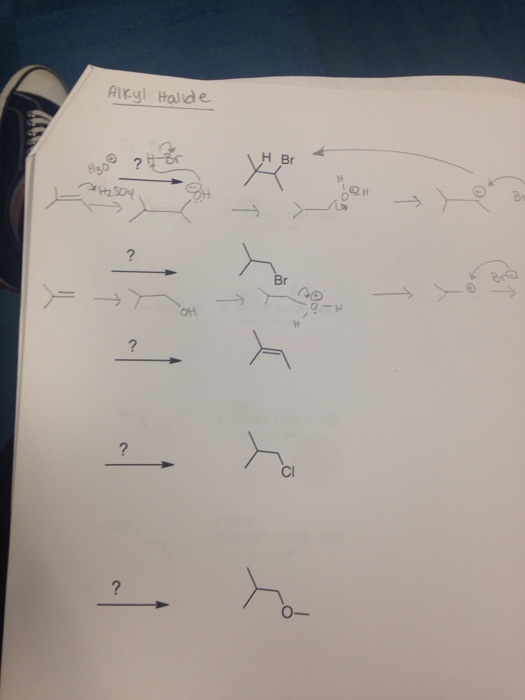 Alkyl Halide
H3O⊕ ? H-Br H Br
H2SO4 OH H O H ⊕ Br
? Br
OH ⊕ O-H H ⊕ Br⊖
?
? Cl
? O